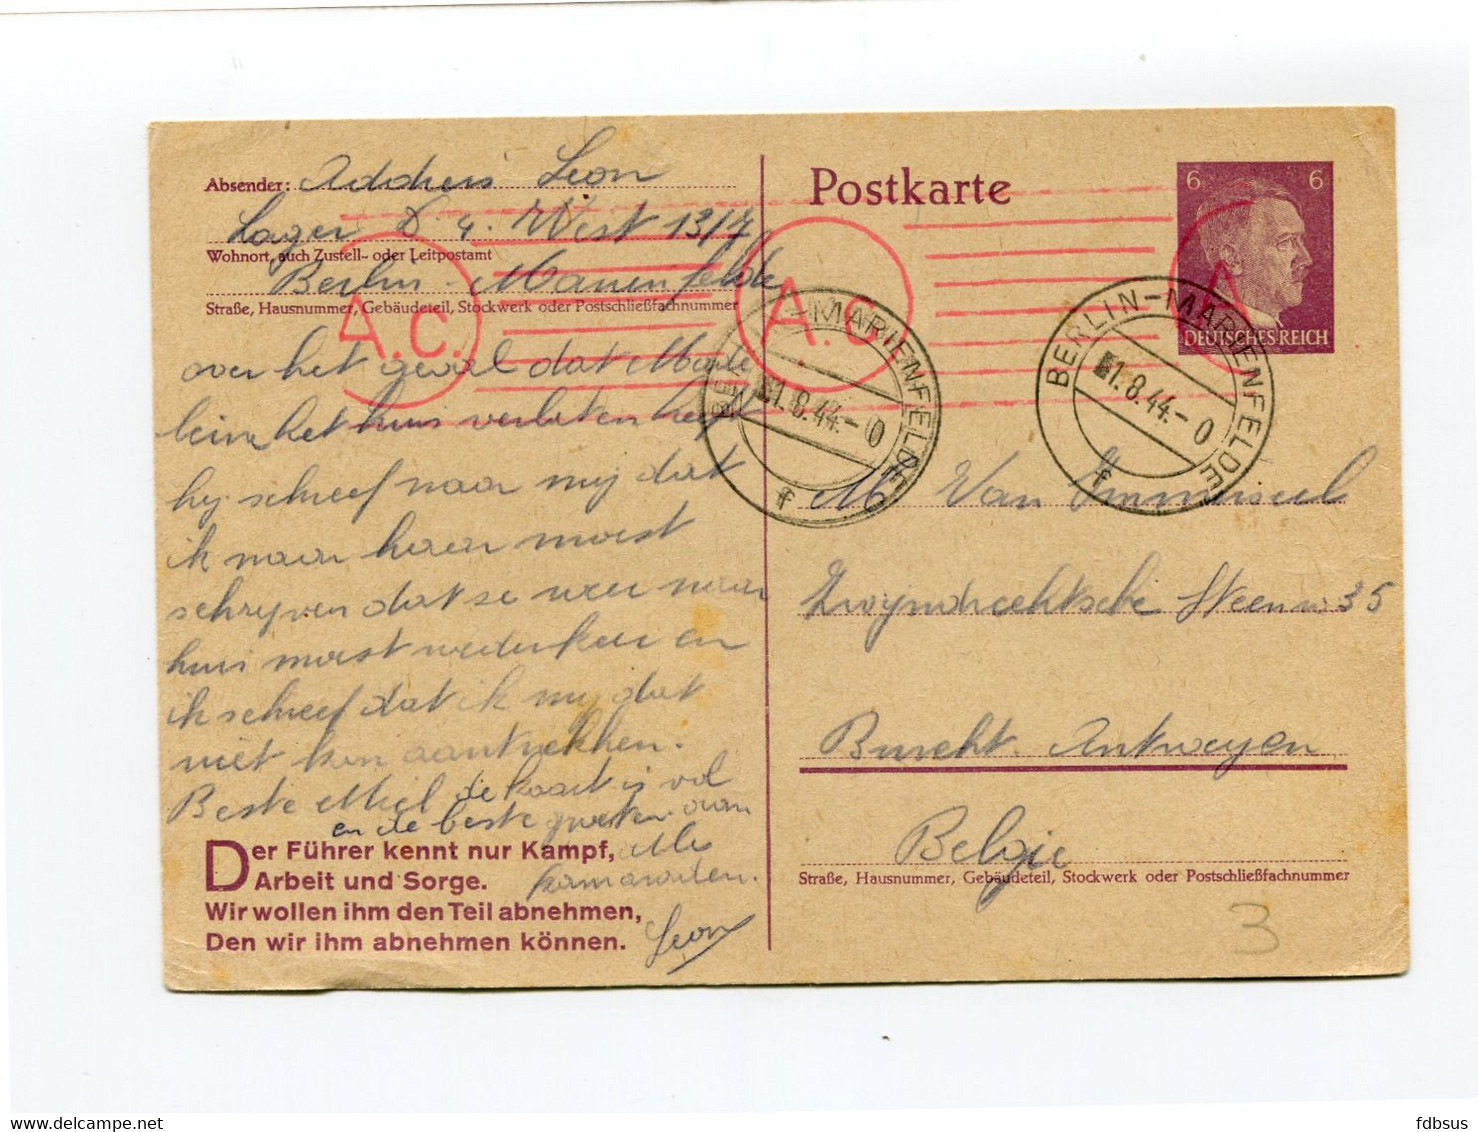 Absender: Addheis Leon
Lager D. 4. West 13/7
Wohnort, auch Zustell- oder Leitpostamt
Berlin-Marienfelde
Straße, Hausnummer, Gebäudeteil, Stockwerk oder Postschließfachnummer
A.C.
over het geval dat
het huis verlaten heeft
hy schreef naar my dat
ik naar haar moest
schryven dat se weer naar
huis moest wederkeer en
ik schreef dat ik my dat
niet kon aantrekken.
Beste Miel de kaart is vol
en de beste groeten van
alle
kamaraden.
Leon
Der Führer kennt nur Kampf,
Arbeit und Sorge.
Wir wollen ihm den Teil abnehmen,
Den wir ihm abnehmen können.
Postkarte
6 6
DEUTSCHES REICH
A.C.
A
BERLIN-MARIENFELDE
1.8.44.-0
f
BERLIN-MARIENFELDE
1.8.44.-0
f
M Van Immerseel
Zwyndrechtsche Steenw 35
Burcht. Antwerpen
Belgie
Straße, Hausnummer, Gebäudeteil, Stockwerk oder Postschließfachnummer
3
fdbsus